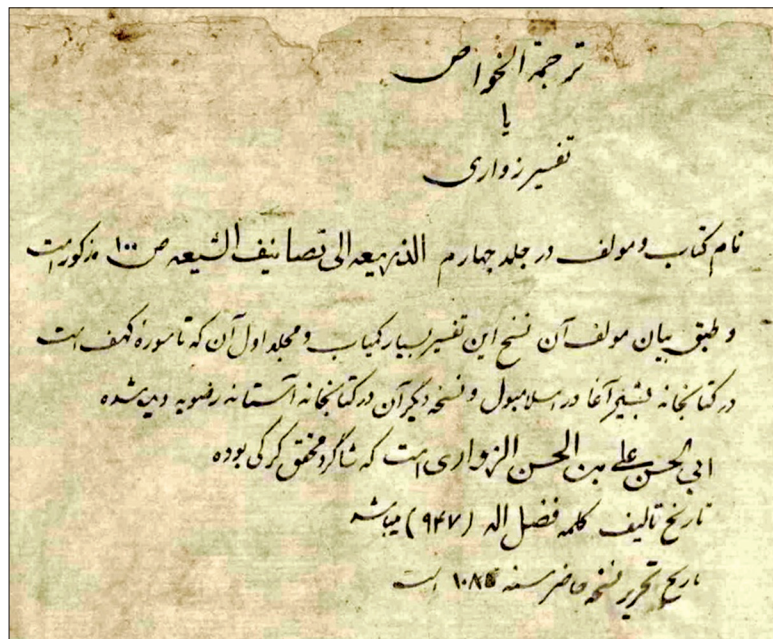 ترجمة الخواص
یا
تفسیر زواری
نام کتاب و مولف در جلد چهارم الذریعه الی تصانیف الشیعه ص ۱۰۰ مذکور است
و طبق بیان مولف آن نسخ این تفسیر بسیار کمیاب و مجلد اول آن که تا سوره کهف است
در کتابخانه بشیر آغا در اسلامبول و نسخه دیگر آن در کتابخانه آستانه رضویه دیده شده
ابی الحسن علی بن الحسن الزواری است که شاگرد محقق کرکی بوده
تاریخ تالیف کلمه فضل اله (۹۴۷) میباشد
تاریخ تحریر نسخه حاضر سنه ۱۰۸۵ است